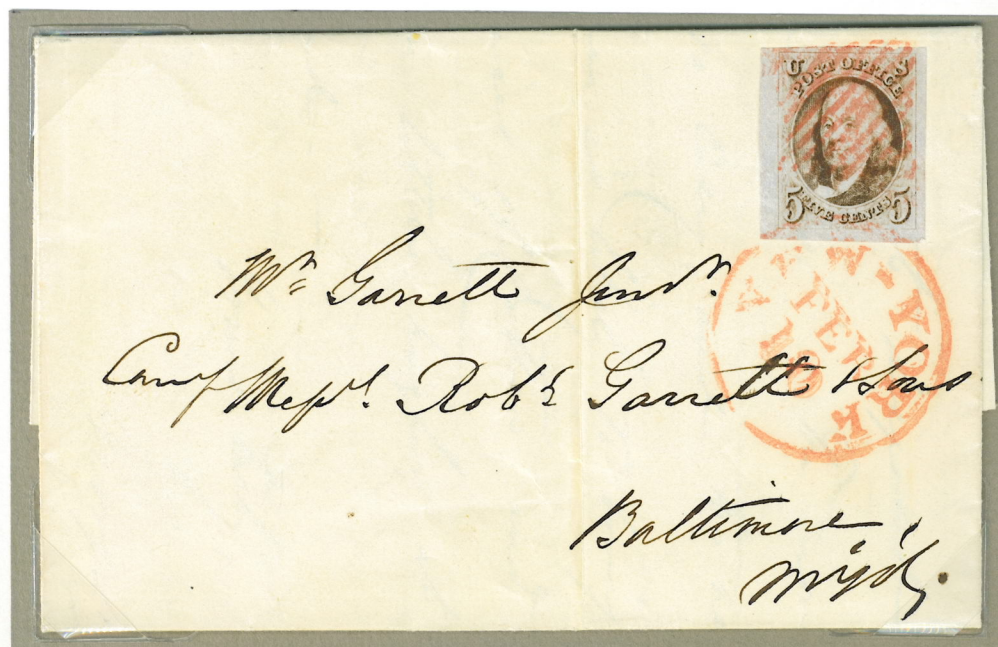 U S
POST OFFICE
5 FIVE CENTS 5
NEW-YORK
FEB
19
Garrett Junr.
Care of Messrs. Robt Garrett & Sons
Baltimore,
Myd,